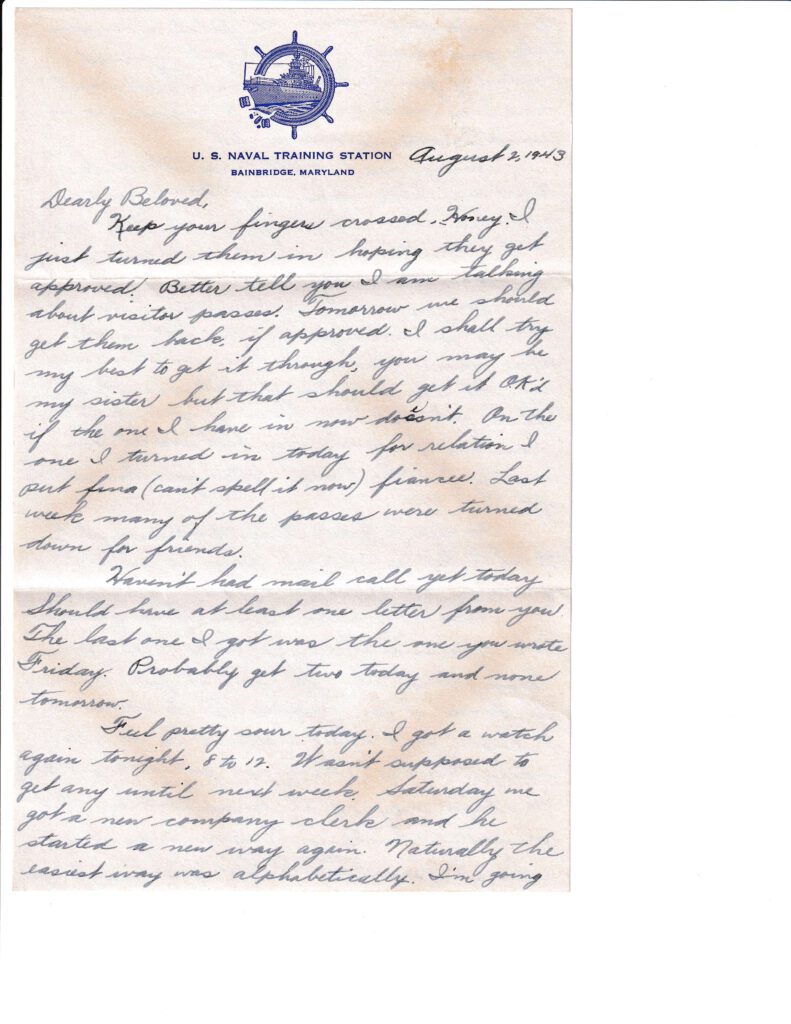 U. S. NAVAL TRAINING STATION
BAINBRIDGE, MARYLAND
August 2, 1943
Dearly Beloved,
Keep your fingers crossed, Honey. I
just turned them in hoping they get
approved. Better tell you I am talking
about visitor passes. Tomorrow we should
get them back, if approved. I shall try
my best to get it through, you may be
my sister but that should get it O.K'd
if the one I have in now doesn't. On the
one I turned in today for relation I
put fina (can't spell it now) fiancee. Last
week many of the passes were turned
down for friends.
Haven't had mail call yet today
Should have at least one letter from you
The last one I got was the one you wrote
Friday. Probably get two today and none
tomorrow.
Feel pretty sour today. I got a watch
again tonight, 8 to 12. Wasn't supposed to
get any until next week. Saturday we
got a new company clerk and he
started a new way again. Naturally the
easiest way was alphabetically. I'm going